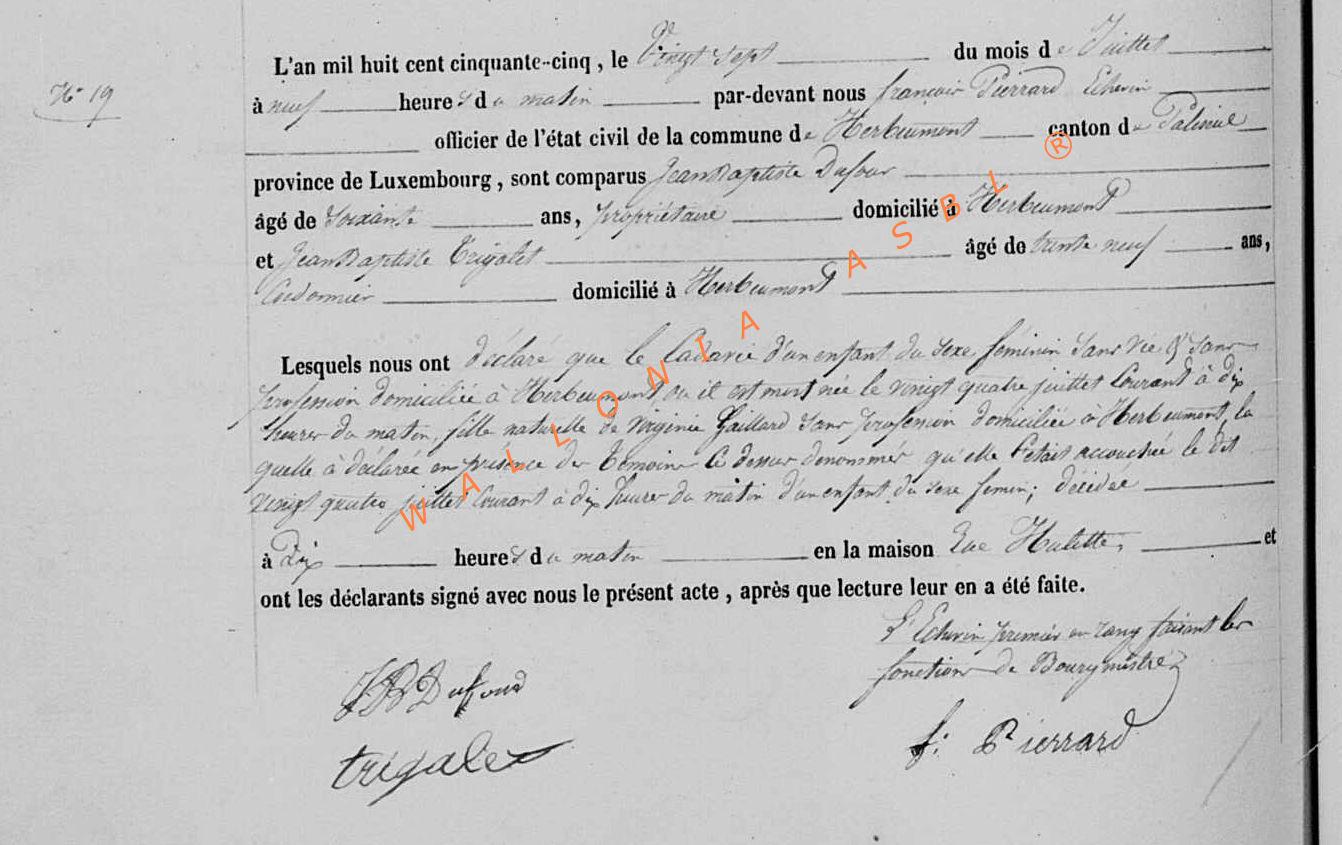 L'an mil huit cent cinquante-cinq, le Vingt Sept du mois de Juillet
N° 19
à neuf heures du matin par-devant nous françois Pierrard Echevin
officier de l'état civil de la commune de Herbeumont canton de Paliseul
province de Luxembourg, sont comparus Jean Baptiste Dufour
âgé de Soixante ans, propriétaire domicilié à Herbeumont
et Jean Baptiste Trigalet âgé de trente neuf ans,
Cordonnier domicilié à Herbeumont
Lesquels nous ont déclaré que le Cadavre d'un enfant du sexe féminin Sans vie & Sans
profession domiciliée à Herbeumont où il est mort née le vingt quatre juillet Courant à dix
heures du matin, fille naturelle de Virginie Gaillard Sans profession domiciliée à Herbeumont, la
quelle à déclarée en présence des Témoins Ci dessus dénommés qu'elle S'était accouchée le dit
vingt quatre juillet Courant à dix heures du matin d'un enfant du sexe femin; décidée
à Dix heures du matin en la maison Rue Hulette, et
ont les déclarants signé avec nous le présent acte, après que lecture leur en a été faite.
L'Echevin premier en rang faisant les
fonctions de Bourgmistre
JB Dufour
trigalet
f: Pierrard
WALLONIA ASBL ®